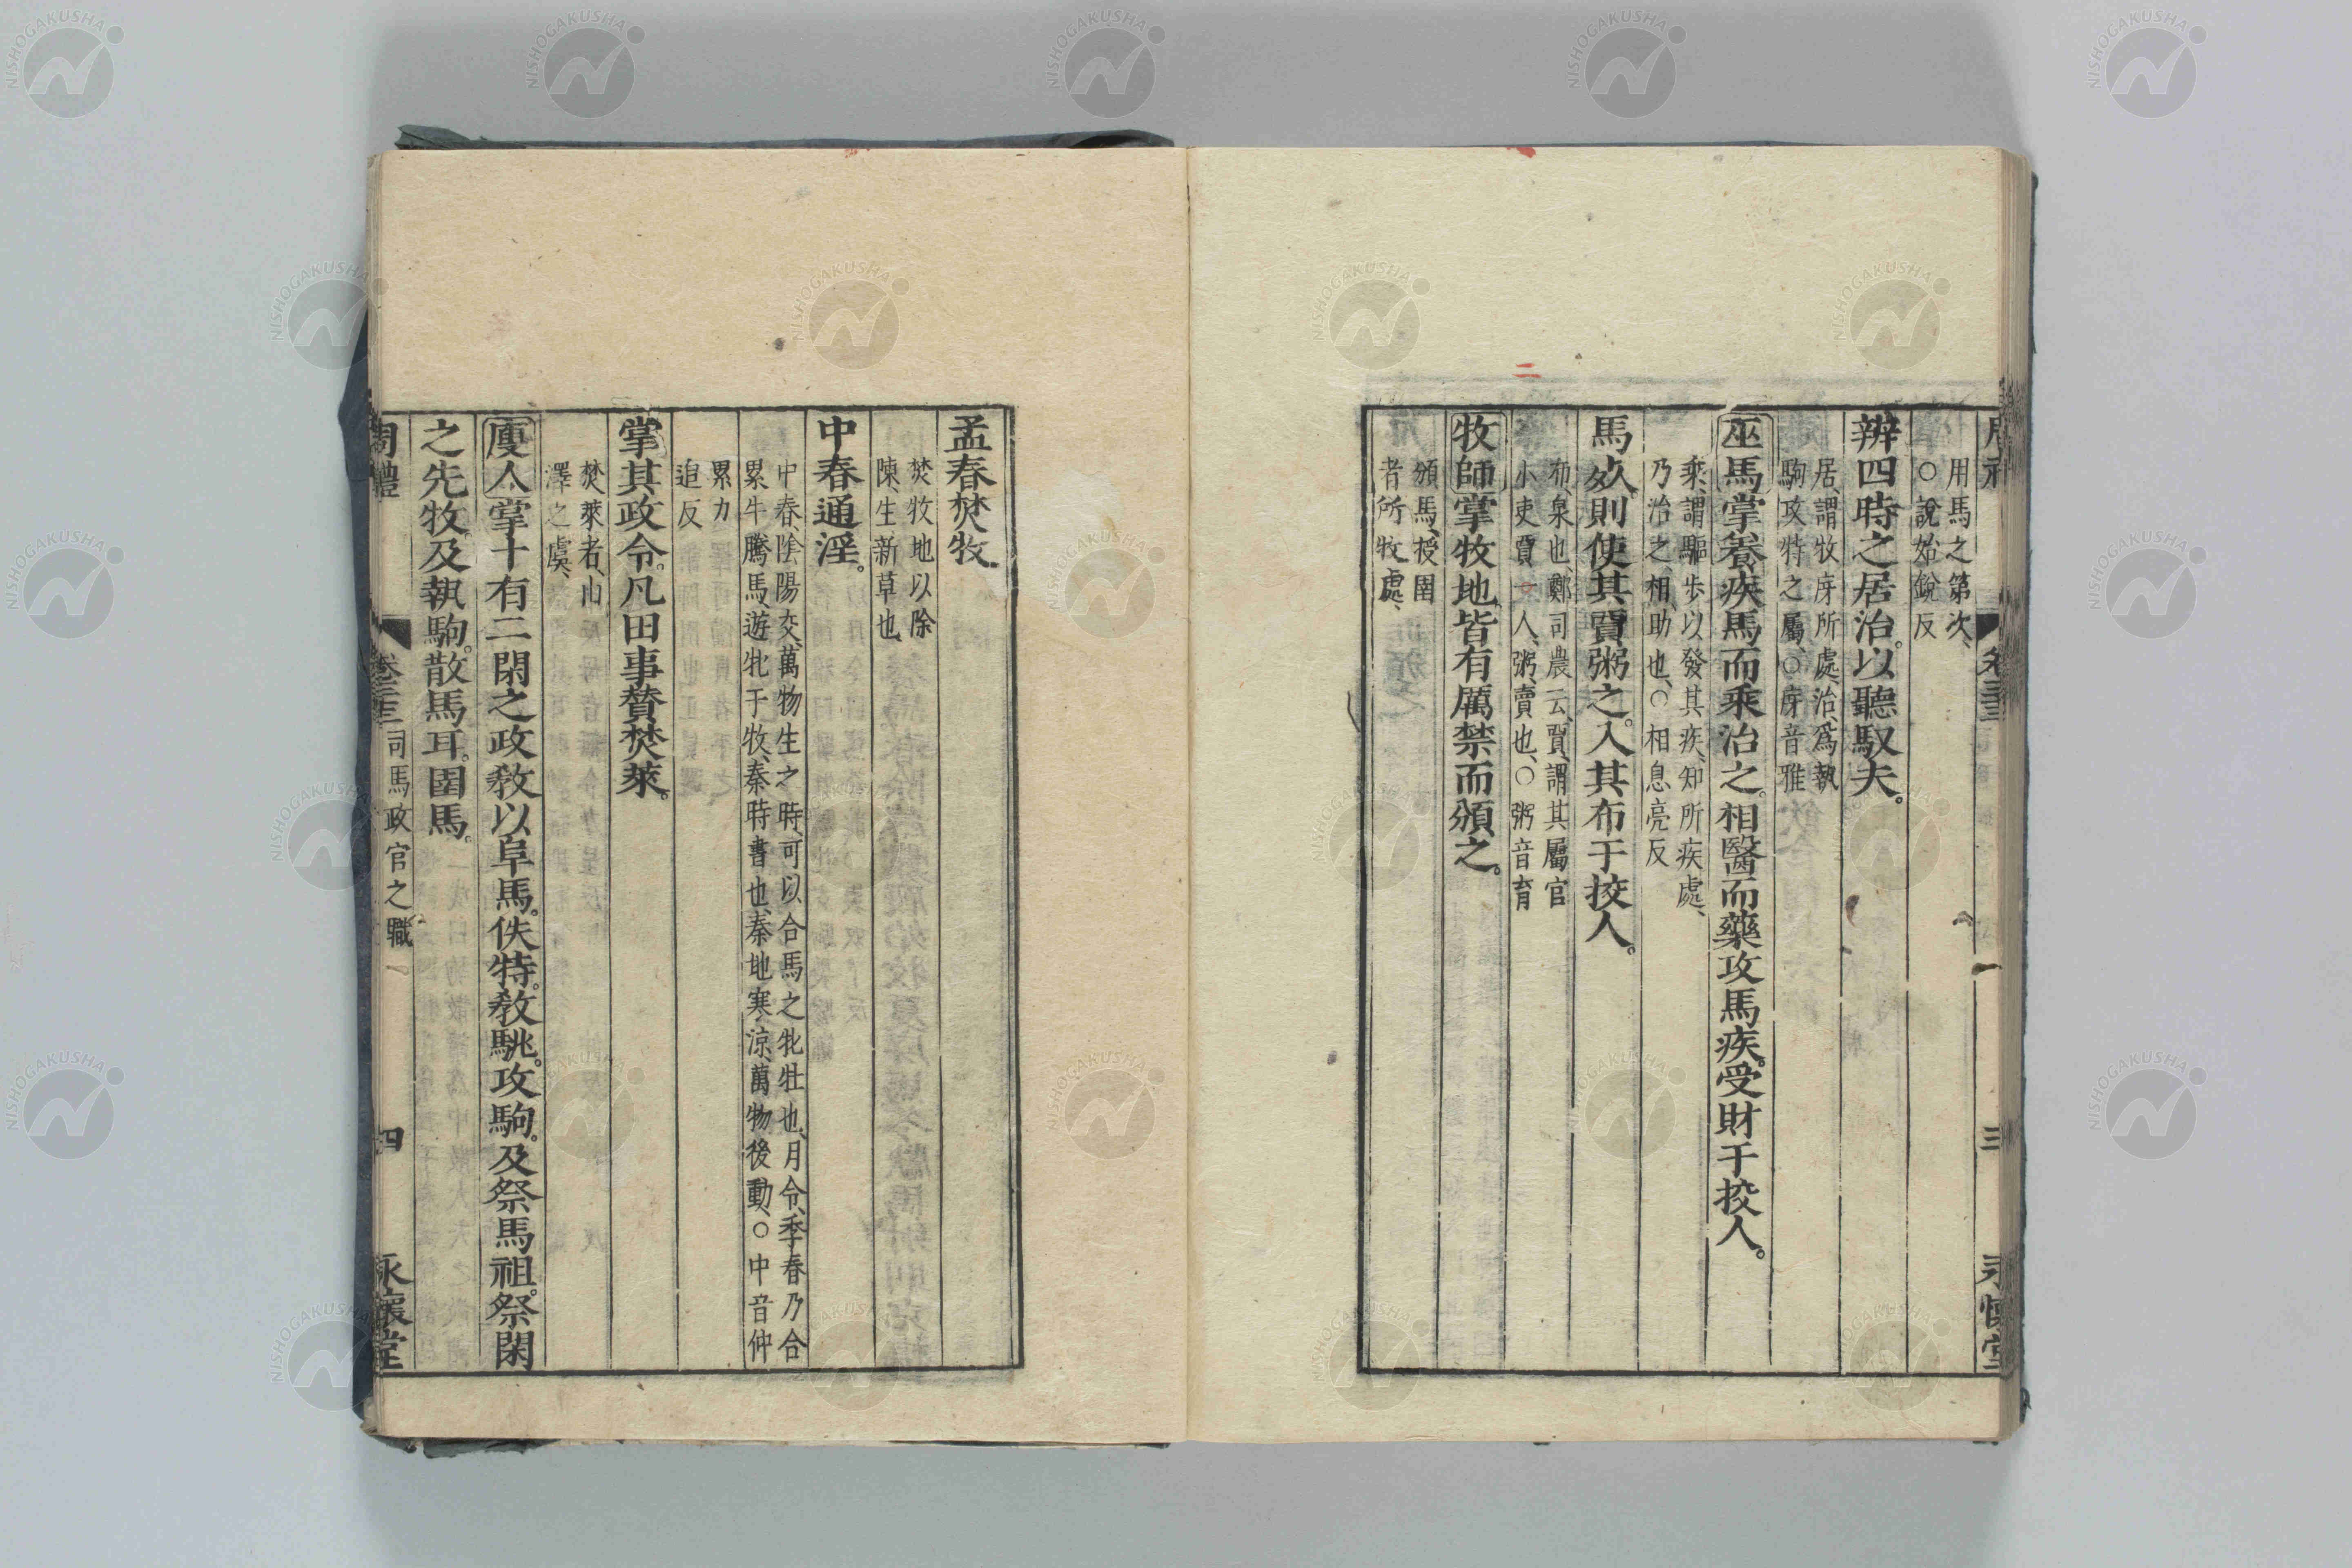 用馬之第次、
○說始銳反
辨四時之居治。以聽馭夫。
居、謂牧庌所處、治、爲執
駒攻特之屬、○庌音雅
巫馬掌養疾馬而乘治之。相醫而藥攻馬疾。受財于挍人。
乘、謂驅步以發其疾、知所疾處、
乃治之、相、助也、○相息亮反
馬死、則使其賈粥之。入其布于挍人。
布、泉也、鄭司農云、賈、謂其屬官
小吏賈二人、粥、賣也、○粥音育
牧師掌牧地、皆有厲禁而頒之。
頒馬、授圉
者所牧處、
三
永懷堂
孟春焚牧、
焚牧地以除
陳、生新草也、
中春通淫。
中春、陰陽交、萬物生之時、可以合馬之牝牡也、月令、季春乃合
累牛騰馬、遊牝于牧、秦時書也、秦地寒涼、萬物後動、○中音仲
累力
追反
掌其政令。凡田事贊焚萊。
焚萊者、山
澤之虞、
廋人掌十有二閑之政教以阜馬。佚特。教駣。攻駒。及祭馬祖。祭閑
之先牧、及執駒。散馬耳。圉馬。
周禮
卷三十三
司馬政官之職
四
永懷堂
NISHOGAKUSHA